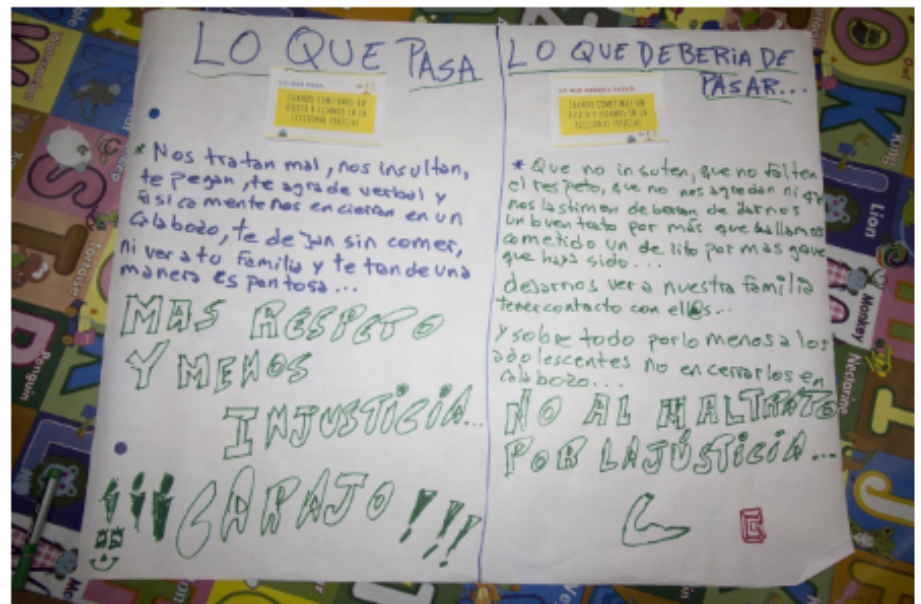 LO QUE PASA
LO QUE PASA...
CUANDO COMETEMOS UN
DELITO Y ESTAMOS EN LA
SECCIONAL POLICIAL
* Nos tratan mal, nos insultan,
te pegan, te agrade verbal y
fisicamente nos encierran en un
calabozo, te dejan sin comer,
ni ver a tu familia y te tan de una
manera espantosa...
MAS RESPETO
Y MENOS
INJUSTICIA...
¡¡¡CARAJO!!!
LO QUE DEBERIA DE
PASAR...
LO QUE DEBERIA PASAR...
CUANDO COMETEMOS UN
DELITO Y ESTAMOS EN LA
SECCIONAL POLICIAL
* Que no insuten, que no falten
el respeto, que no nos agredan ni
nos lastimen deberan de darnos
un buen trato por más que hallamos
cometido un delito por mas gave
que haya sido...
dejarnos ver a nuestra familia
tener contacto con ell@s...
y sobre todo por lo menos a los
adolescentes no encerrarlos en
calabozo...
NO AL MALTRATO
POR LA JÚSTICIA...
Watermelon
Tortoise
Penguin
Owl
King
Lion
Monkey
Nectarine